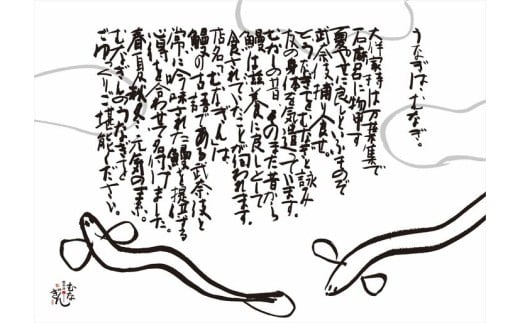 うなぎは、むなぎ。
大伴家持は万葉集で
石麻呂に物申す
夏やせに良しといふものぞ
武奈伎捕り食せ。
という歌でむなぎを詠み
友の身体を気遣っています。
むかしの昔、そのまた昔から
鰻は滋養に良しとして
食されていたことが伺われます。
店名の「むなぎん」は
鰻の古語である武奈伎と
常に吟味された鰻を提供する
吟を合わせて名付けました。
春夏秋冬、元気の素。
むなぎんのうなぎを
ごゆっくりご堪能ください。
むな
ぎん